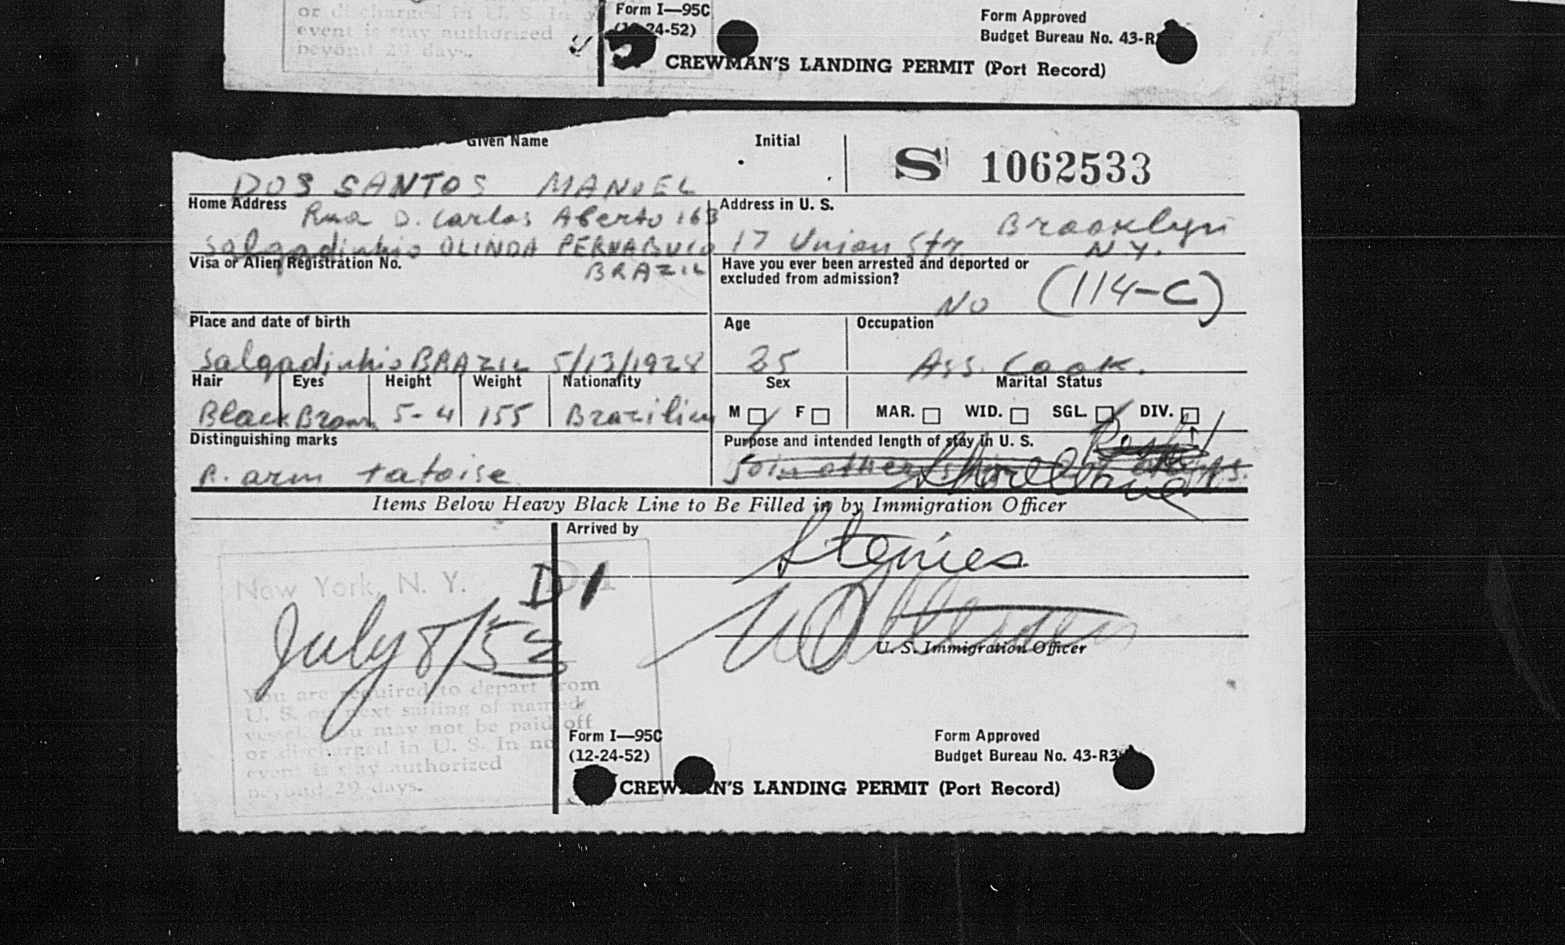 or discharged in U. S. In
event is stay authorized
beyond 29 days.
Form I—95C
(12-24-52)
Form Approved
Budget Bureau No. 43-R
CREWMAN'S LANDING PERMIT (Port Record)
Given Name Initial
S 1062533
DOS SANTOS MANUEL
Home Address Rua D. Carlos Aberto 163
Salgadinhio OLINDA PERNABUCO
BRAZIL
Address in U. S.
17 Union Str Brooklyn
N.Y.
Visa or Alien Registration No.
Have you ever been arrested and deported or
excluded from admission?
No (114-C)
Place and date of birth
Salgadinhio BRAZIL 5/13/1928
Age
25
Occupation
Ass. Cook.
Hair Eyes Height Weight Nationality
Black Brown 5-4 155 Brazilien
Sex
M ☐ F ☐
Marital Status
MAR. ☐ WID. ☐ SGL. ☐ DIV. ☐
Distinguishing marks
R. arm tatoise
Purpose and intended length of stay in U. S.
Join other
Shore leave
Items Below Heavy Black Line to Be Filled in by Immigration Officer
Arrived by
New York, N. Y.
D1
July 8/53
You are required to depart from
U. S. on next sailing of named
vessel. You may not be paid off
or discharged in U. S. In no
event is stay authorized
beyond 29 days.
U. S. Immigration Officer
Form I—95C
(12-24-52)
Form Approved
Budget Bureau No. 43-R3
CREWMAN'S LANDING PERMIT (Port Record)